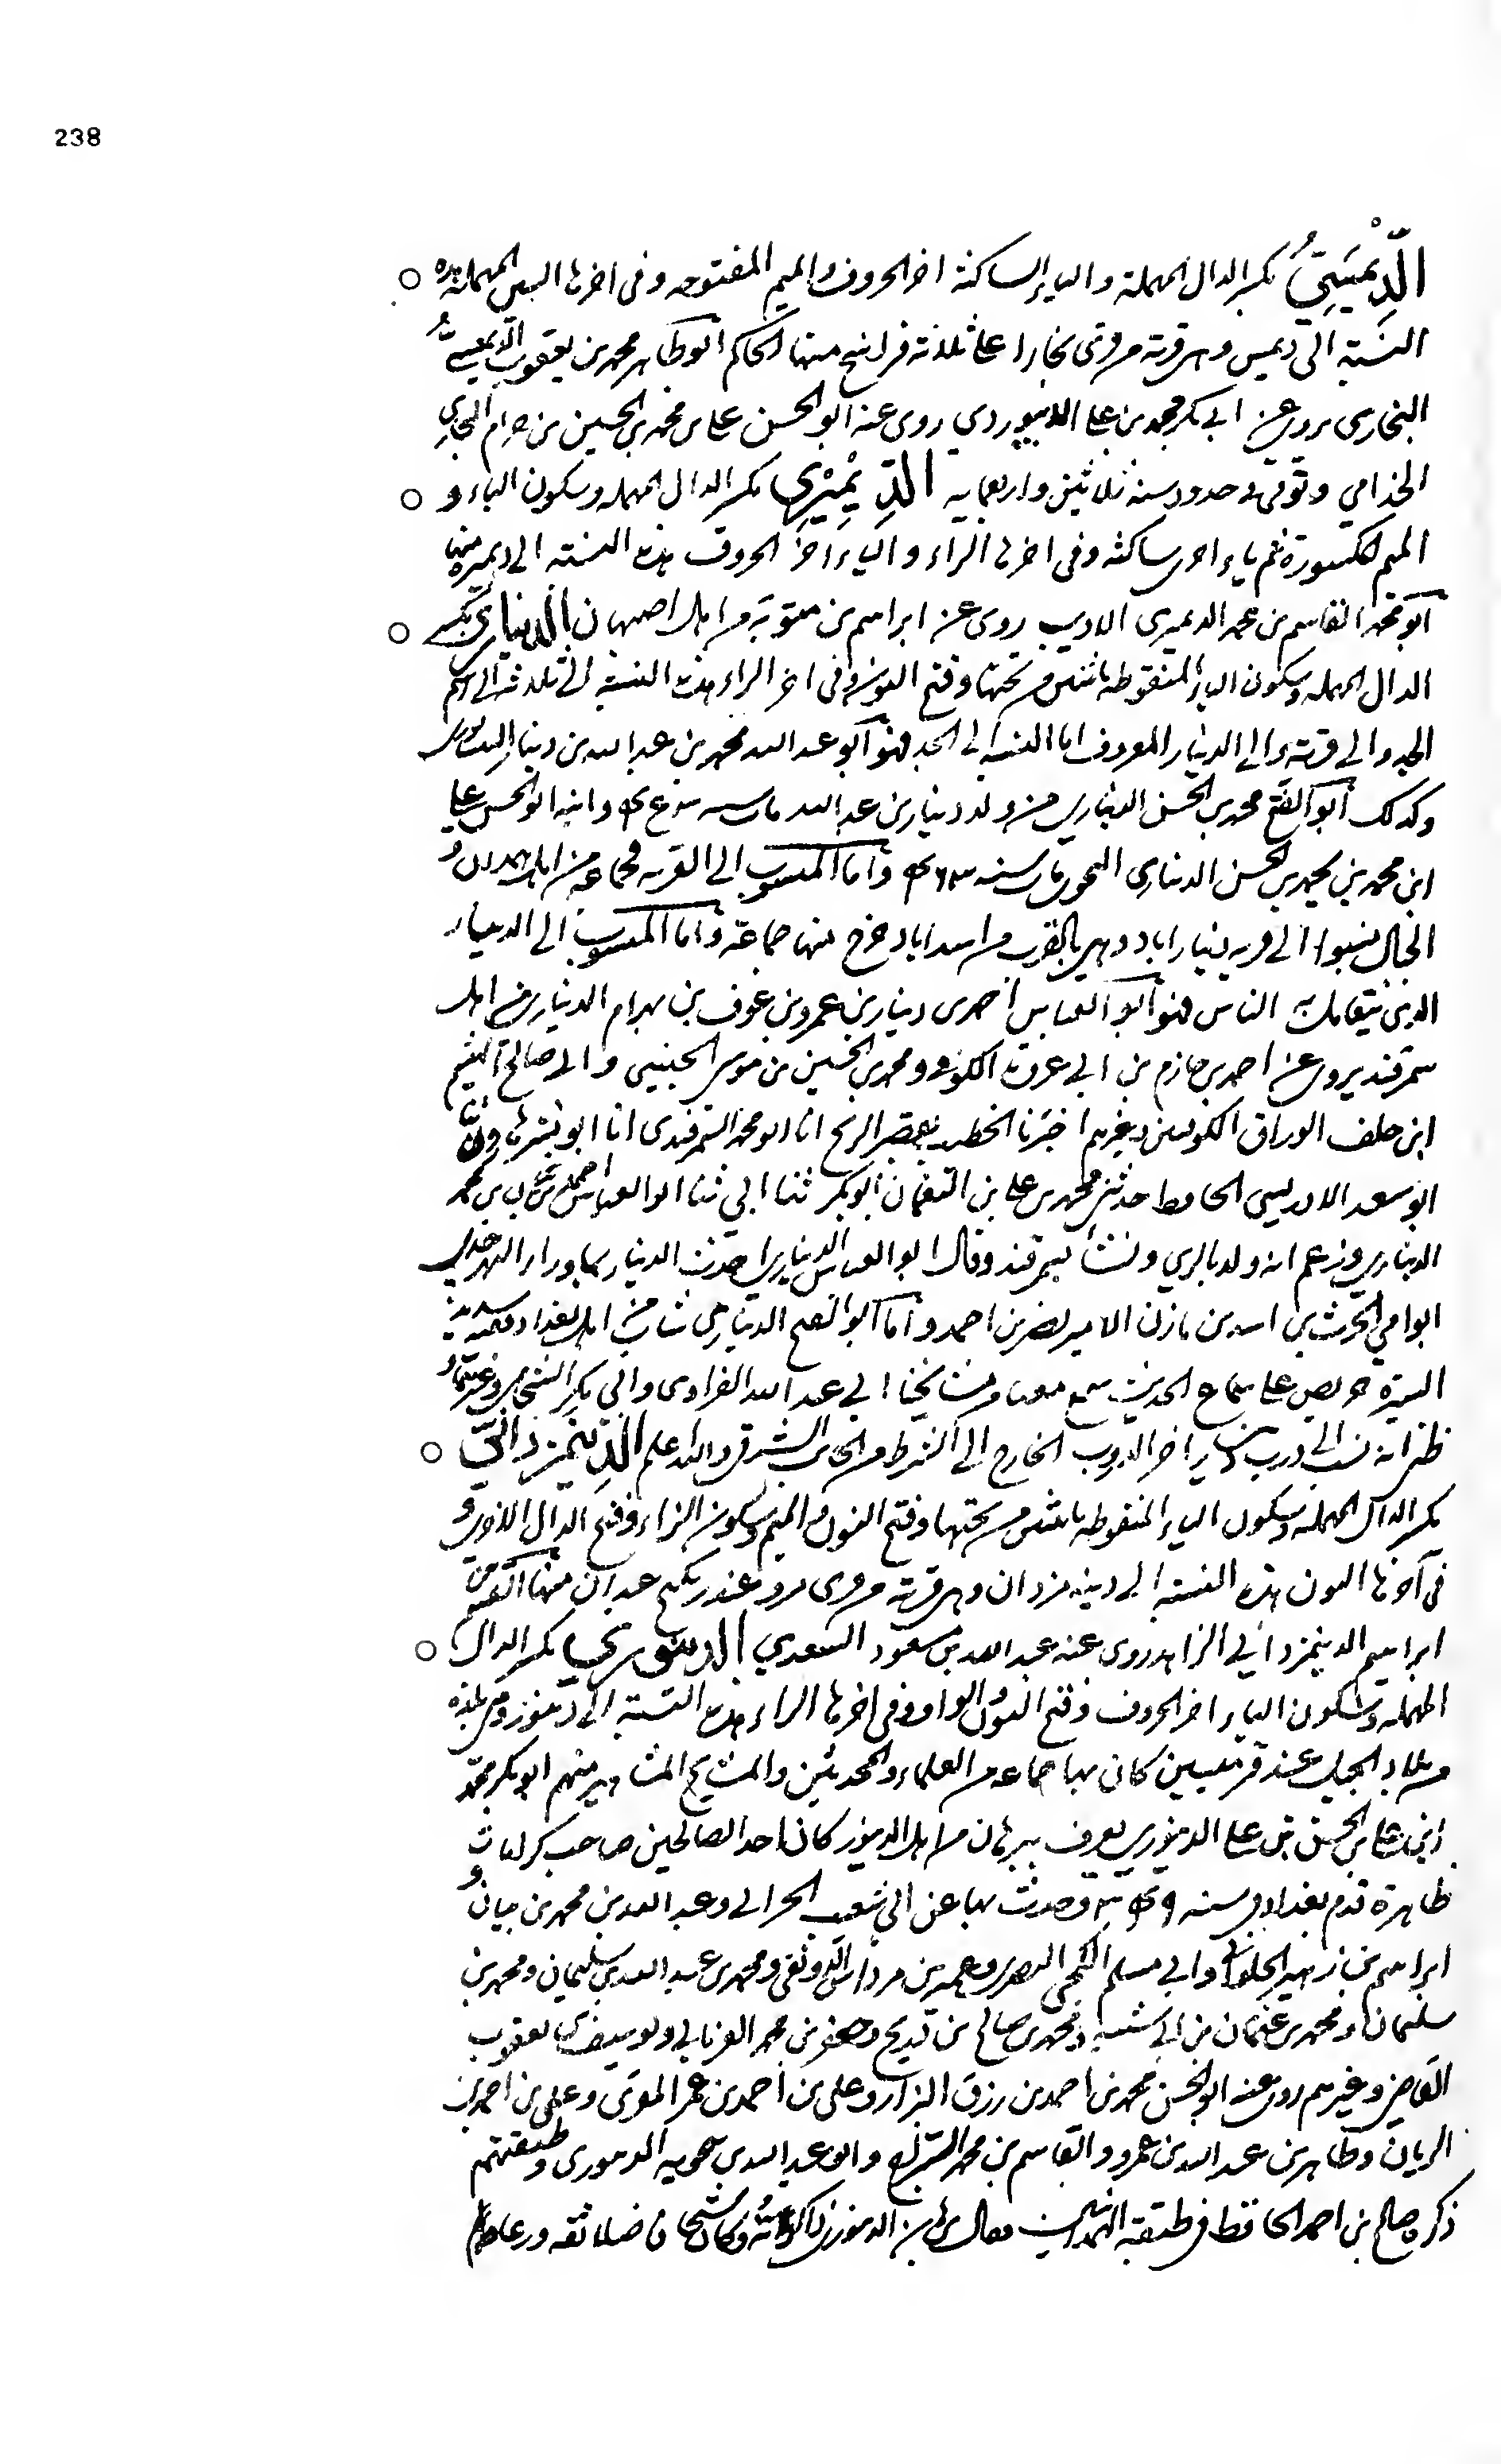 238
الدِّيْمَسِيُّ بكسر الدال المهملة والياء الساكنة اخر الحروف والميم المفتوحه وفى اخرها السين المهملة هذه
النسبة الى ديمس وهى قرية من قرى بخارا على ثلاثة فراسخ منها الحاكم ابو طاهر محمد بن يعقوب الديمسيُّ
البخارى يروى عن ابى بكر محمد بن على الابيوردي روى عنه ابو الحسن على بن محمد بن الحسين بن حرام البخاري
الجذامي وتوفي فى حدود سنة ثلاثين واربعمايه الدِّيْمِيْرِي بكسر الدال المهمله وسكون الياء و
الميم المكسورة ثم ياء اخرى ساكنة وفى اخرها الراء والياء اخر الحروف هذه النسبة الى ديميره منها
ابو محمد القاسم بن محمد الديميرى الاديب روى عن ابراهيم بن متوية من اهل اصبهان الدِّيناري بكسر
الدال المهمله وسكون الياء المنقوطه باثنتين من تحتها وفتح النون وفى اخر الراء هذه النسبة الى ثلاثة الى اسم
الجد والى قرية والى الدينار المعروف اما النسبه الى الجد فهو ابو عبد الله محمد بن عبد الله بن دينار النيسابورى
وكذلك ابو الفتح محمد بن الحسن الديناري من ولد دينار بن عبد الله مات سنه وابنه ابو الحسن على
ابن محمد بن الحسن الدينارى النحوى مات سنه واما المنسوب الى القريه فجماعه من اهل همدان و
الجبال نسبوا الى قريه دينار اباد وهى بالقرب من اسداباد خرج منها جماعة واما المنسوب الى الدينار
الذى يتعامل به الناس فهو ابو العباس احمد بن دينار بن عمرو بن عوف بن بهرام الدينارى من اهل
سمرقند يروى عن احمد بن حازم بن ابى غرزة الكوفى ومحمد بن الحسين بن موسى الحنينى وابى صالح الهيثم
ابن خلف الوراق الكوفيين وغيرهم اخبرنا الخطيب بقصر الريح انا ابو محمد السمرقندى انا ابو بشر
ابو سعد الادريسى الحافظ حدثنى محمد بن على بن النعمان ابو بكر ثنا ابي ثنا ابو العباس احمد بن محمد
الديناري وزعم انه ولد بالري ونشأ بسمرقند وقال ابو العباس الديناري احدثت الدينار بما وراء النهر
الحرث بن اسد بن مازن الامير نصر بن احمد واما ابو الفتح الدينارى شاب من اهل بغداد فقيه سديد
السيرة حريص على سماع الحديث سمع معنا من مشايخنا ابى عبد الله الفراوى وابى بكر الشحامى وغيرهما و
ظنى انه نسب الى درب دينار اخر الدروب الخارج الى الشط من الجانب الشرقى والله اعلم الدِّينَمَزْدانيّ
بكسر الدال المهمله وسكون الياء المنقوطه باثنتين من تحتها وفتح النون والميم وسكون الزاء وفتح الدال الاخرى و
فى اخرها النون هذه النسبة الى دينه مزدان وهى قرية من قرى مرو عند ريكنج عبدان منها القسم بن
ابراهيم الدينمزدانى الزاهد روى عنه عبد الله بن مسعود السعدي الدينوري بكسر الدال
المهمله وسكون الياء اخر الحروف وفتح النون والواو وفى اخرها الراء هذه النسبة الى دينور وهى بلدة
من بلاد الجبل عند قرميسين كان بها جماعه من العلماء والمحدثين والمشايخ المشاهير منهم ابو بكر محمد
ابن على بن الحسن بن على الدينوري يعرف ببرهان من اهل الدينور كان احد الصالحين صاحب كرامات
ظاهرة قدم بغداد فى سنه وحدث بها عن ابى شعيب الحرانى وعبد الله بن محمد بن بيان و
ابراهيم بن زهير الحلوانى وابى مسلم الكجى البصرى وعمير بن مرداس الدونقى ومحمد بن عبد الله بن سليمان ومحمد بن
سليمان ومحمد بن عثمان بن ابى شيبه ومحمد بن صالح بن ذريح وجعفر بن محمد الفريابى ويوسف بن يعقوب
القاضى وغيرهم روى عنه ابو الحسن محمد بن احمد بن رزق البزاز وعلى بن احمد بن عمر المقرى وعلى بن احمد بن
الريان وطاهر بن عبد الله بن عمر والقاسم بن محمد السراج وابو عبد الله بن الدينورى وطبقتهم
ذكره صالح بن احمد الحافظ فى طبقة الهمدانيين وقال برهان الدينورى وكان شيخا فاضلا ثقه ورعا